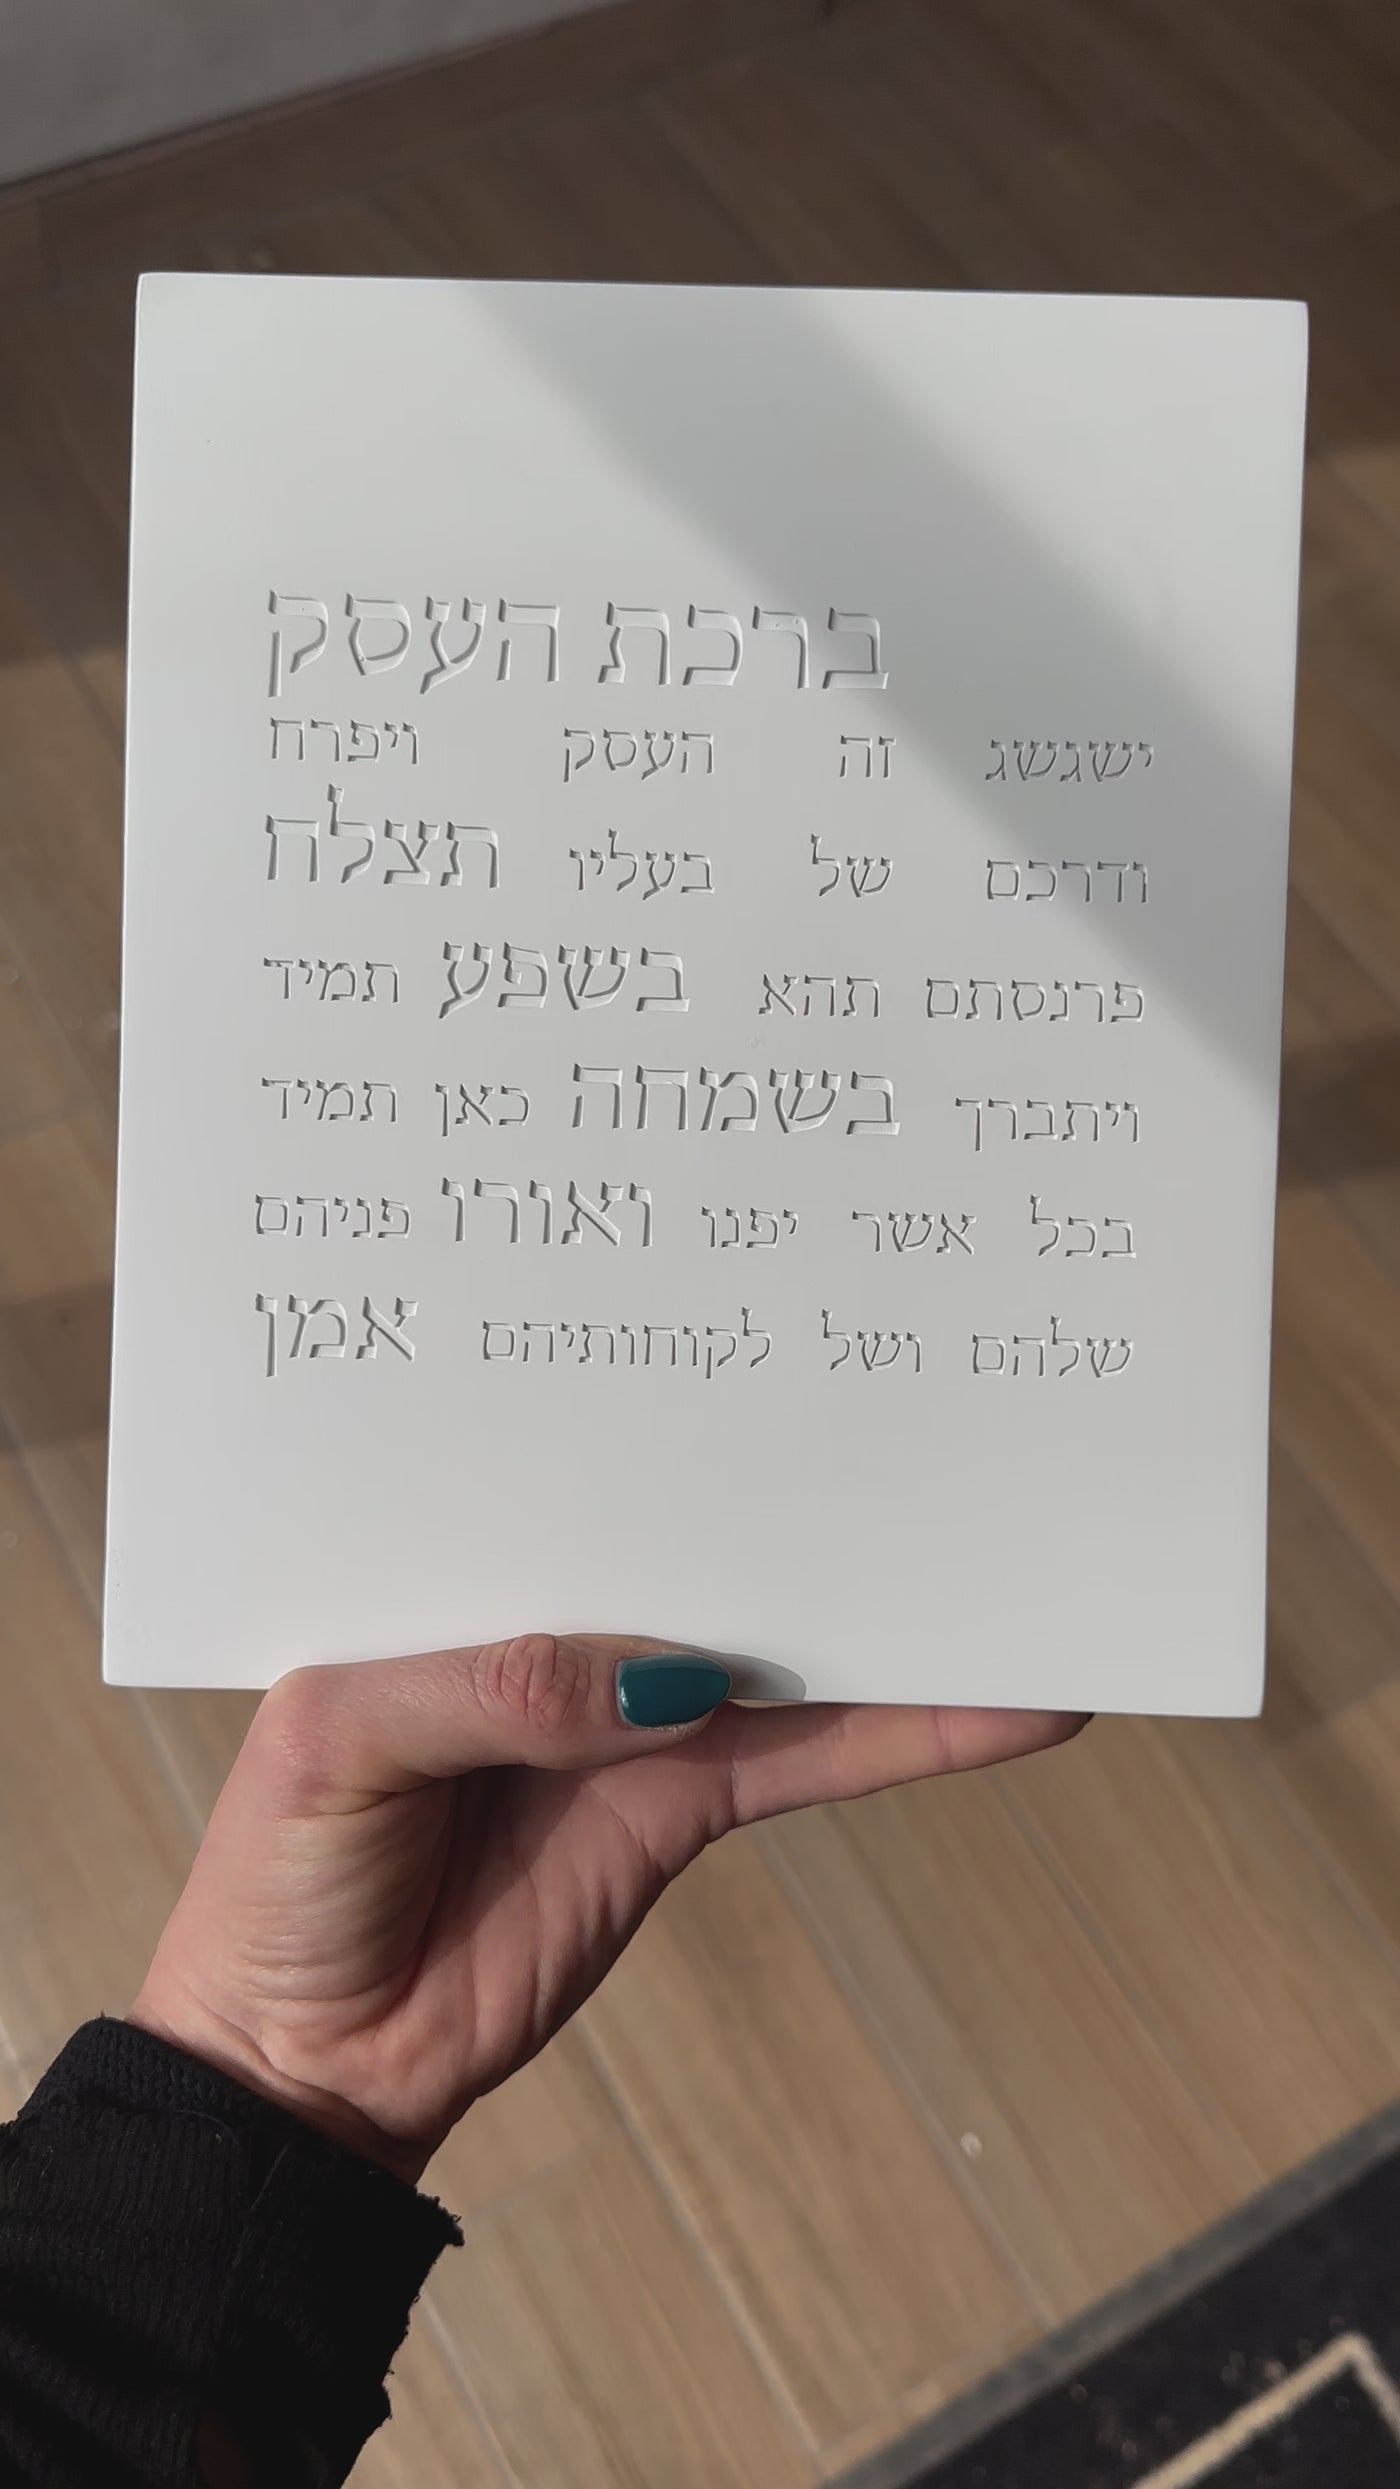 ברכת העסק
ישגשג זה העסק ויפרח
ודרכם של בעליו תצלח
פרנסתם תהא בשפע תמיד
ויתברך בשמחה כאן תמיד
בכל אשר יפנו ואורו פניהם
שלהם ושל לקוחותיהם אמן